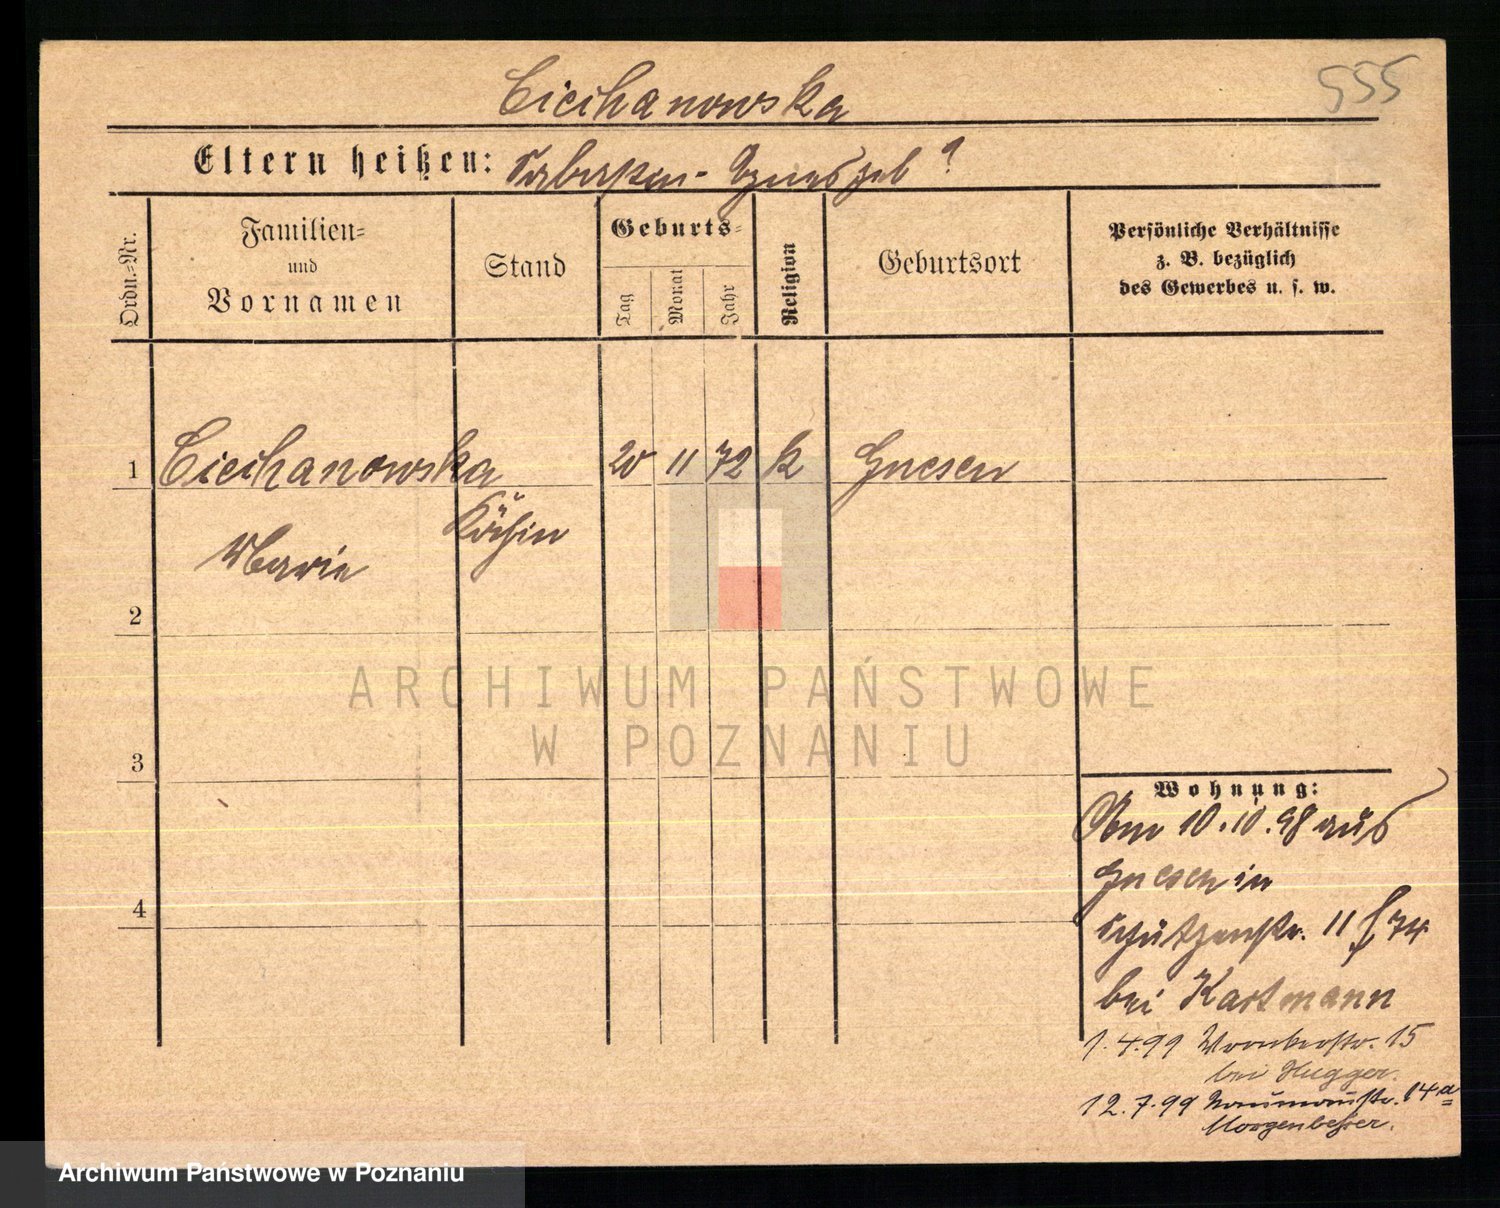 Ciechanowska 555
Eltern heißen: Sebastian - Agnes geb ?
Ordn.-Nr.
Familien-
und
Vornamen
Stand
Geburts-
Tag
Monat
Jahr
Religion
Geburtsort
Persönliche Verhältnisse
z. B. bezüglich
des Gewerbes u. s. w.
1 Ciechanowska 20 11 72 k Gnesen
Köchin
Marie
2
3
4
Wohnung:
Am 10.10.98 aus
Gnesen in
Schützenstr. 11
bei Kartmann
1.4.99 Wronkerstr. 15
bei Hugger.
12.7.99 Naumannstr. 14a
Morgenbesser.
ARCHIWUM PAŃSTWOWE
W POZNANIU
Archiwum Państwowe w Poznaniu